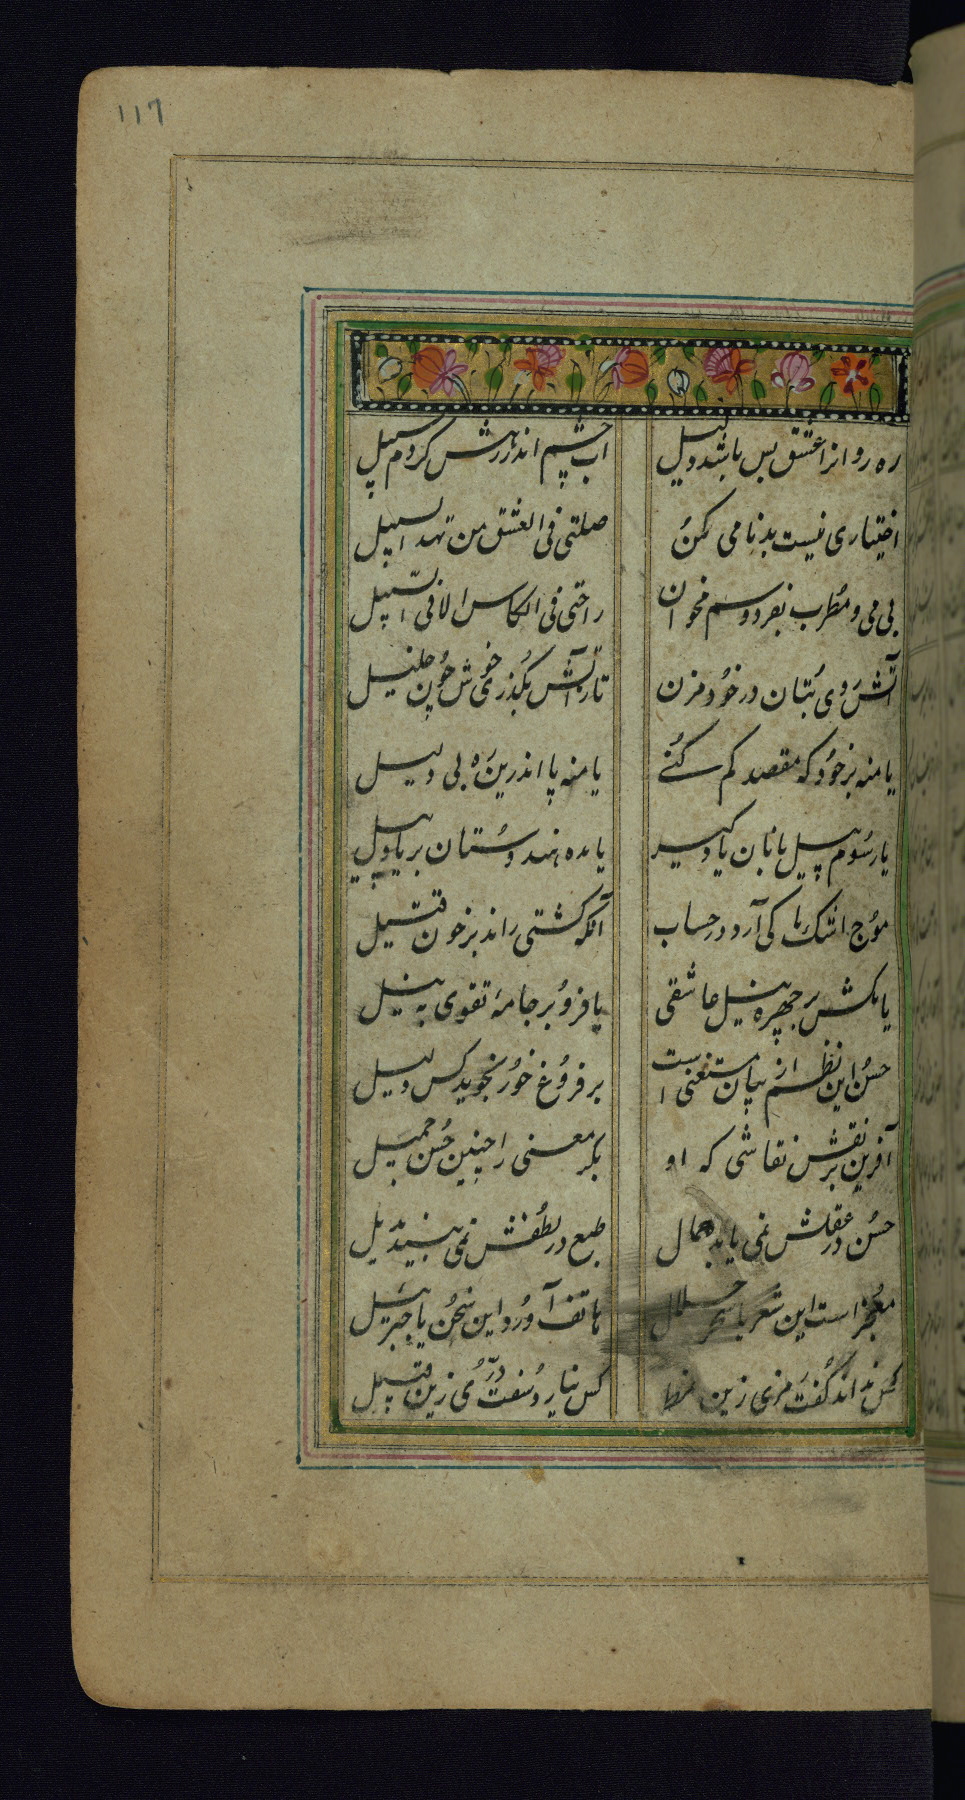 117
ره روانرا عشق بس باشد دلیل
آب چشم اندر رهش کردم سبیل
اختیاری نیست بدنامی من
صلنی فی العشق من یهد السبیل
بی می و مطرب بفردوسم مخوان
راحتی فی الکاس لا فی السبیل
آتش روی بتان در خود مزن
تا ز آتش بگذری خوش چون خلیل
یا منه بر خود که مقصد کم کنی
یا منه پا اندرین ره بی دلیل
یا رسوم پیل بانان یاد گیر
یا مده هندوستان بر یاد پیل
موج اشک ما کی آرد در حساب
آنکه کشتی راند بر خون قتیل
یا مکش بر چهره نیل عاشقی
یا فرو بر جامه تقوی به نیل
حسن این نظم از بیان مستغنی است
بر فروغ خور نجوید کس دلیل
آفرین بر نقش نقاشی که او
بکر معنی را چنین حسن جمیل
حسن در عقلش نمی یابد جمال
طبع در لطفش نمی بیند بدیل
معجز است این شعر یا سحر حلال
هاتف آورد این سخن یا جبرئیل
کس نداند گفت مزی زین نمط
کس نیارد سفت دری زین قبیل